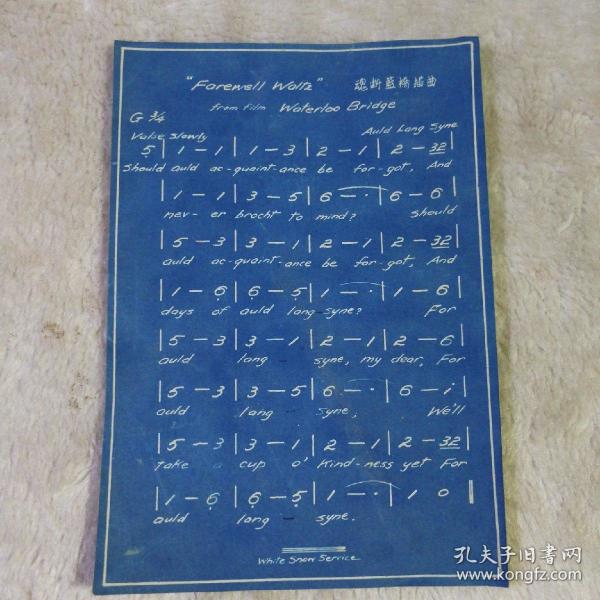 "Farewell Waltz" 魂断藍橋插曲
from film Waterloo Bridge
G 3/4
Valse Slowly Auld Lang Syne
5̣ | 1 — 1 | 1 — 3 | 2 — 1 | 2 — 32 |
Should auld ac-quaint-ance be for-got, And
| 1 — 1 | 3 — 5 | 6 — · | 6 — 6 |
nev-er brocht to mind? Should
| 5 — 3 | 3 — 1 | 2 — 1 | 2 — 32 |
auld ac-quaint-ance be for-got, And
| 1 — 6̣ | 6̣ — 5̣ | 1 — · | 1 — 6 |
days of auld lang-syne? For
| 5 — 3 | 3 — 1 | 2 — 1 | 2 — 6 |
auld lang - syne, my dear, For
| 5 — 3 | 3 — 5 | 6 — · | 6 — i |
auld lang syne, We'll
| 5 — 3 | 3 — 1 | 2 — 1 | 2 — 32 |
Take a cup o' Kind-ness yet For
| 1 — 6̣ | 6̣ — 5̣ | 1 — · | 1 0 ||
auld lang - syne.
White Snow Service
孔夫子旧书网
www.kongfz.com